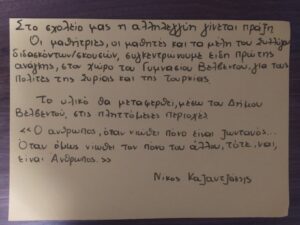 Στο σχολείο μας η αλληλεγγύη γίνεται πράξη
Οι μαθήτριες, οι μαθητές και τα μέλη του Συλλόγου
διδασκόντων/σκουσών, συγκεντρώνουμε είδη πρώτης
ανάγκης, στο χώρο του Γυμνασίου Βελβεντού, για τους
πολίτες της Συρίας και της Τουρκίας
Το υλικό θα μεταφερθεί, μέσω του Δήμου
Βελβεντού, στις πληττόμενες περιοχές
<<Ο άνθρωπος, όταν νιώθει πόνο είναι ζωντανός...
Όταν όμως νιώθει τον πόνο του άλλου, τότε, ναι,
είναι Άνθρωπος.>>
Νίκος Καζαντζάκης